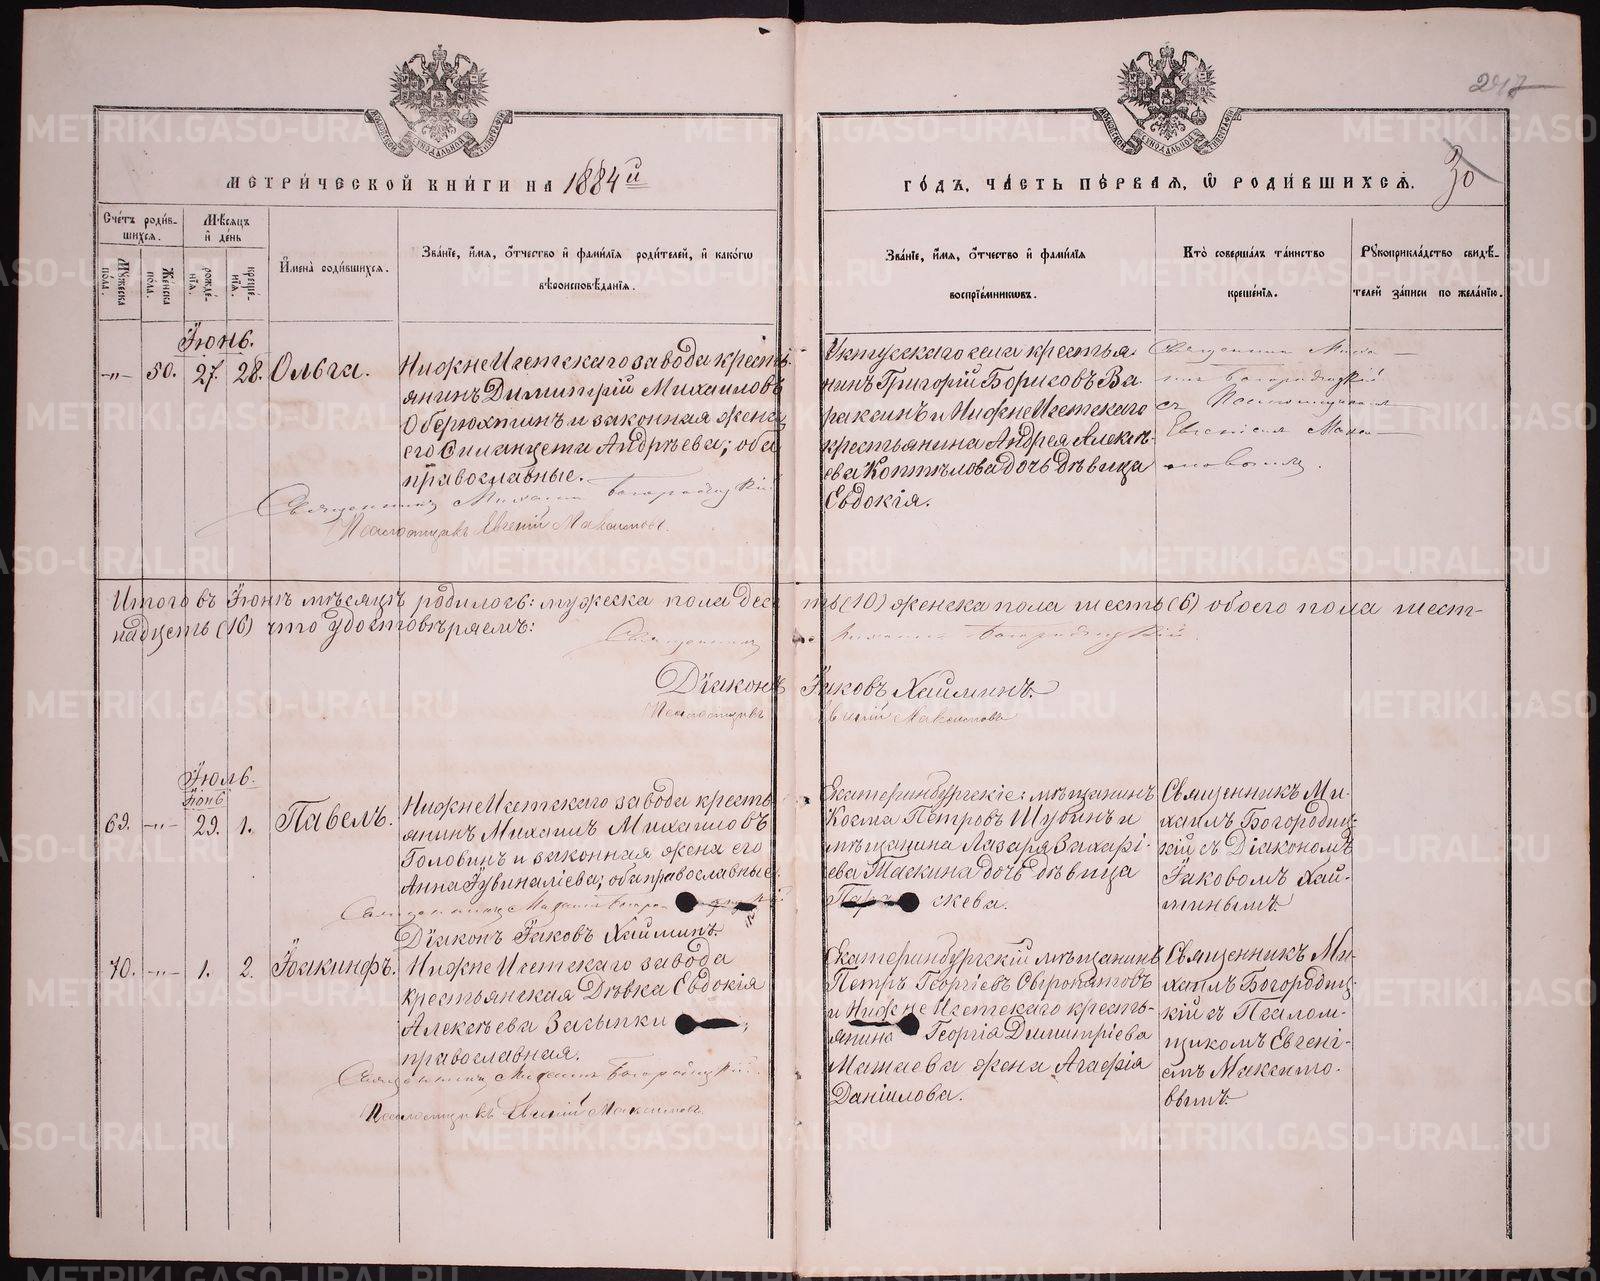 247
МЕТРИ́ЧЕСКОЙ КНИ́ГИ НА 1884й
ГО́ДЪ, ЧА́СТЬ ПЕ́РВАЯ, Ѿ РОДИ́ВШИХСѦ.
30
Сче́тъ роди́в-
шихся.
Мѣ́сяцъ
и҆ де́нь
Му́жеска
по́ла.
Же́нска
по́ла.
рожде́-
нїя.
креще́-
нїя.
И҆мена̀ роди́вшихся.
Зва́нїе, и҆́мя, о҆́тчество и҆ фами́лїя роди́телей, и҆ како́гѡ
вѣроисповѣ́данїя.
Зва́нїе, и҆́мя, о҆́тчество и҆ фами́лїя
воспрїе́мникѡвъ.
Кто̀ соверша́лъ та́инство
креще́нїя.
Рꙋкоприкла́дство свидѣ́-
телей за́писи по жела́нїю.
Іюнь.
-„- 50. 27. 28. Ольга.
НижнеИсетскаго завода кресть-
янинъ Димитрій Михаиловъ
Оберюхтинъ и законная жена
его Силанцета Андрѣева; оба
православные.
Священникъ Михаилъ Богородицкій
Псаломщикъ Евгеній Максимовъ.
Уктусскаго села крестья-
нинъ Григорій Борисовъ Ва-
раксинъ и НижнеИсетскаго
крестьянина Андрея Алексѣ-
ева Коптѣлова дочь дѣвица
Евдокія.
Священникъ Миха-
илъ Богородицкій
съ Псаломщикомъ
Евгеніемъ Макси-
мовымъ.
Итого въ Іюнѣ мѣсяцѣ родилось: мужеска пола деся ть (10) женска пола шесть (6) обоего пола шест-
надцеть (16) что удостовѣряемъ:
Священникъ Михаилъ Богородицкій.
Діаконъ Іаковъ Хайминъ.
Псаломщикъ Евгеній Максимовъ
Іюль.
Іюнь
69. -„- 29. 1. Павелъ.
НижнеИсетскаго завода кресть-
янинъ Михаилъ Михаиловъ
Головинъ и законная жена его
Анна Іувиналіева; оба православные.
Священникъ Михаилъ Богородицкій
Діаконъ Іаковъ Хайминъ.
Екатеринбургскіе: мѣщанинъ
Косма Петровъ Шубинъ и
мѣщанина Лазаря Захарі-
ева Таскина дочь дѣвица
Параскева.
Священникъ Ми-
хаилъ Богородиц-
кій съ Діакономъ
Іаковомъ Хай-
минымъ.
70. -„- 1. 2. Іоакинфъ.
НижнеИсетскаго завода
крестьянская дѣвка Евдокія
Алексѣева Засыпки
православная.
Священникъ Михаилъ Богородицкій.
Псаломщикъ Евгеній Максимовъ
Екатеринбургскій мѣщанинъ
Петръ Георгіевъ Сыропятовъ
и НижнеИсетскаго кресть-
янина Георгія Димитріева
Матаева жена Агафія
Даніилова.
Священникъ Ми-
хаилъ Богородиц-
кій съ Псалом-
щикомъ Евгені-
емъ Максимо-
вымъ.
METRIKI.GASO-URAL.RU